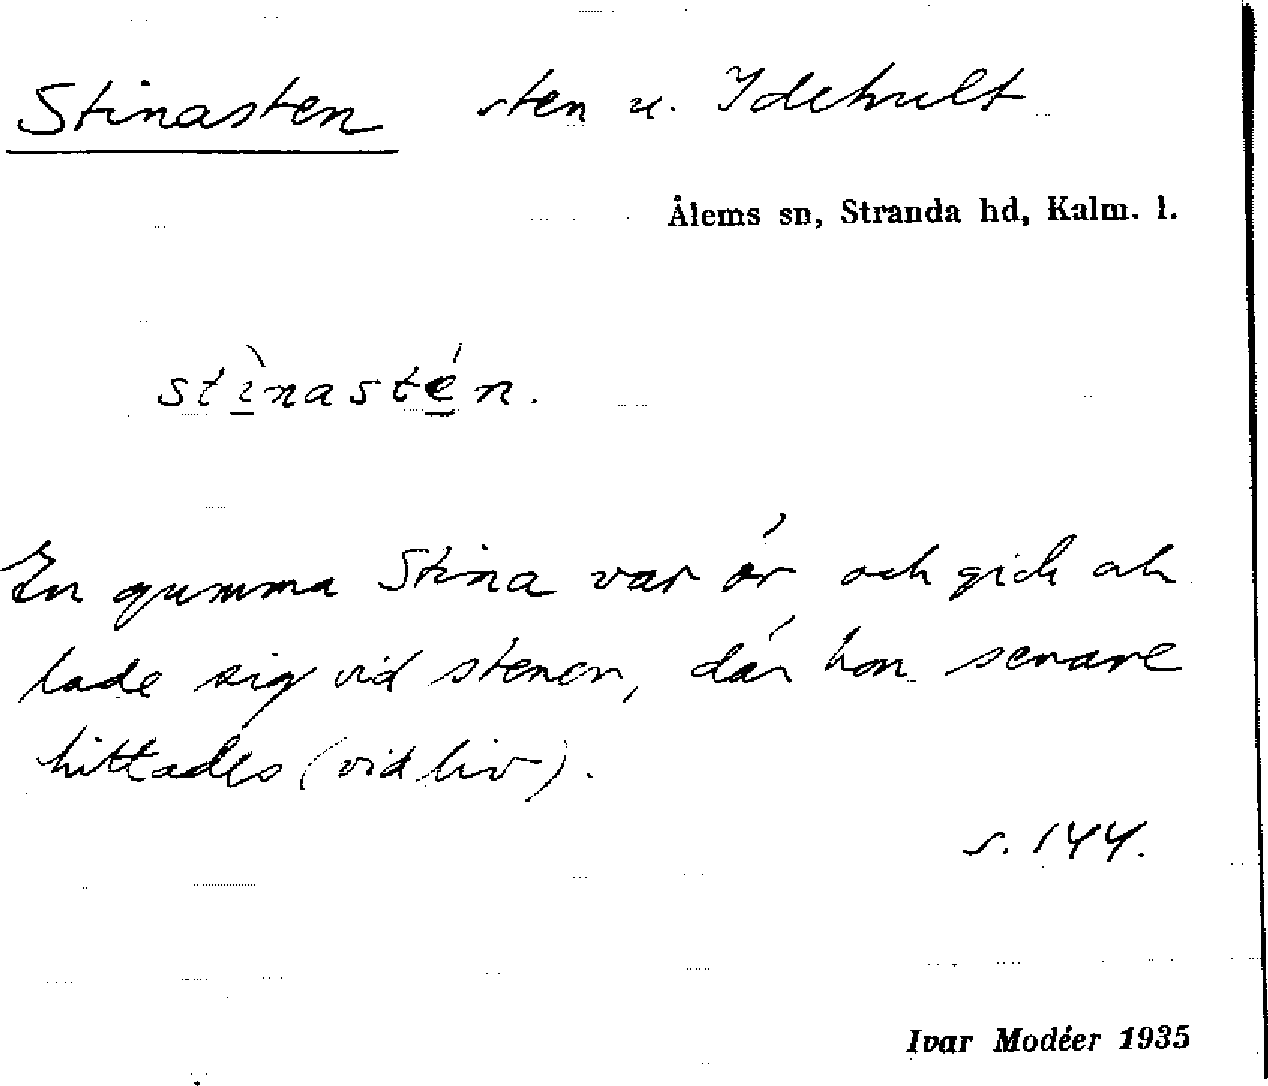 Stinasten sten u. Idehult
Ålems sn, Stranda hd, Kalm. l.
stìnastén.
En gumma Stina var ör och gick och
lade sig vid stenen, där hon senare
hittades (vid liv).
s. 144.
Ivar Modéer 1935